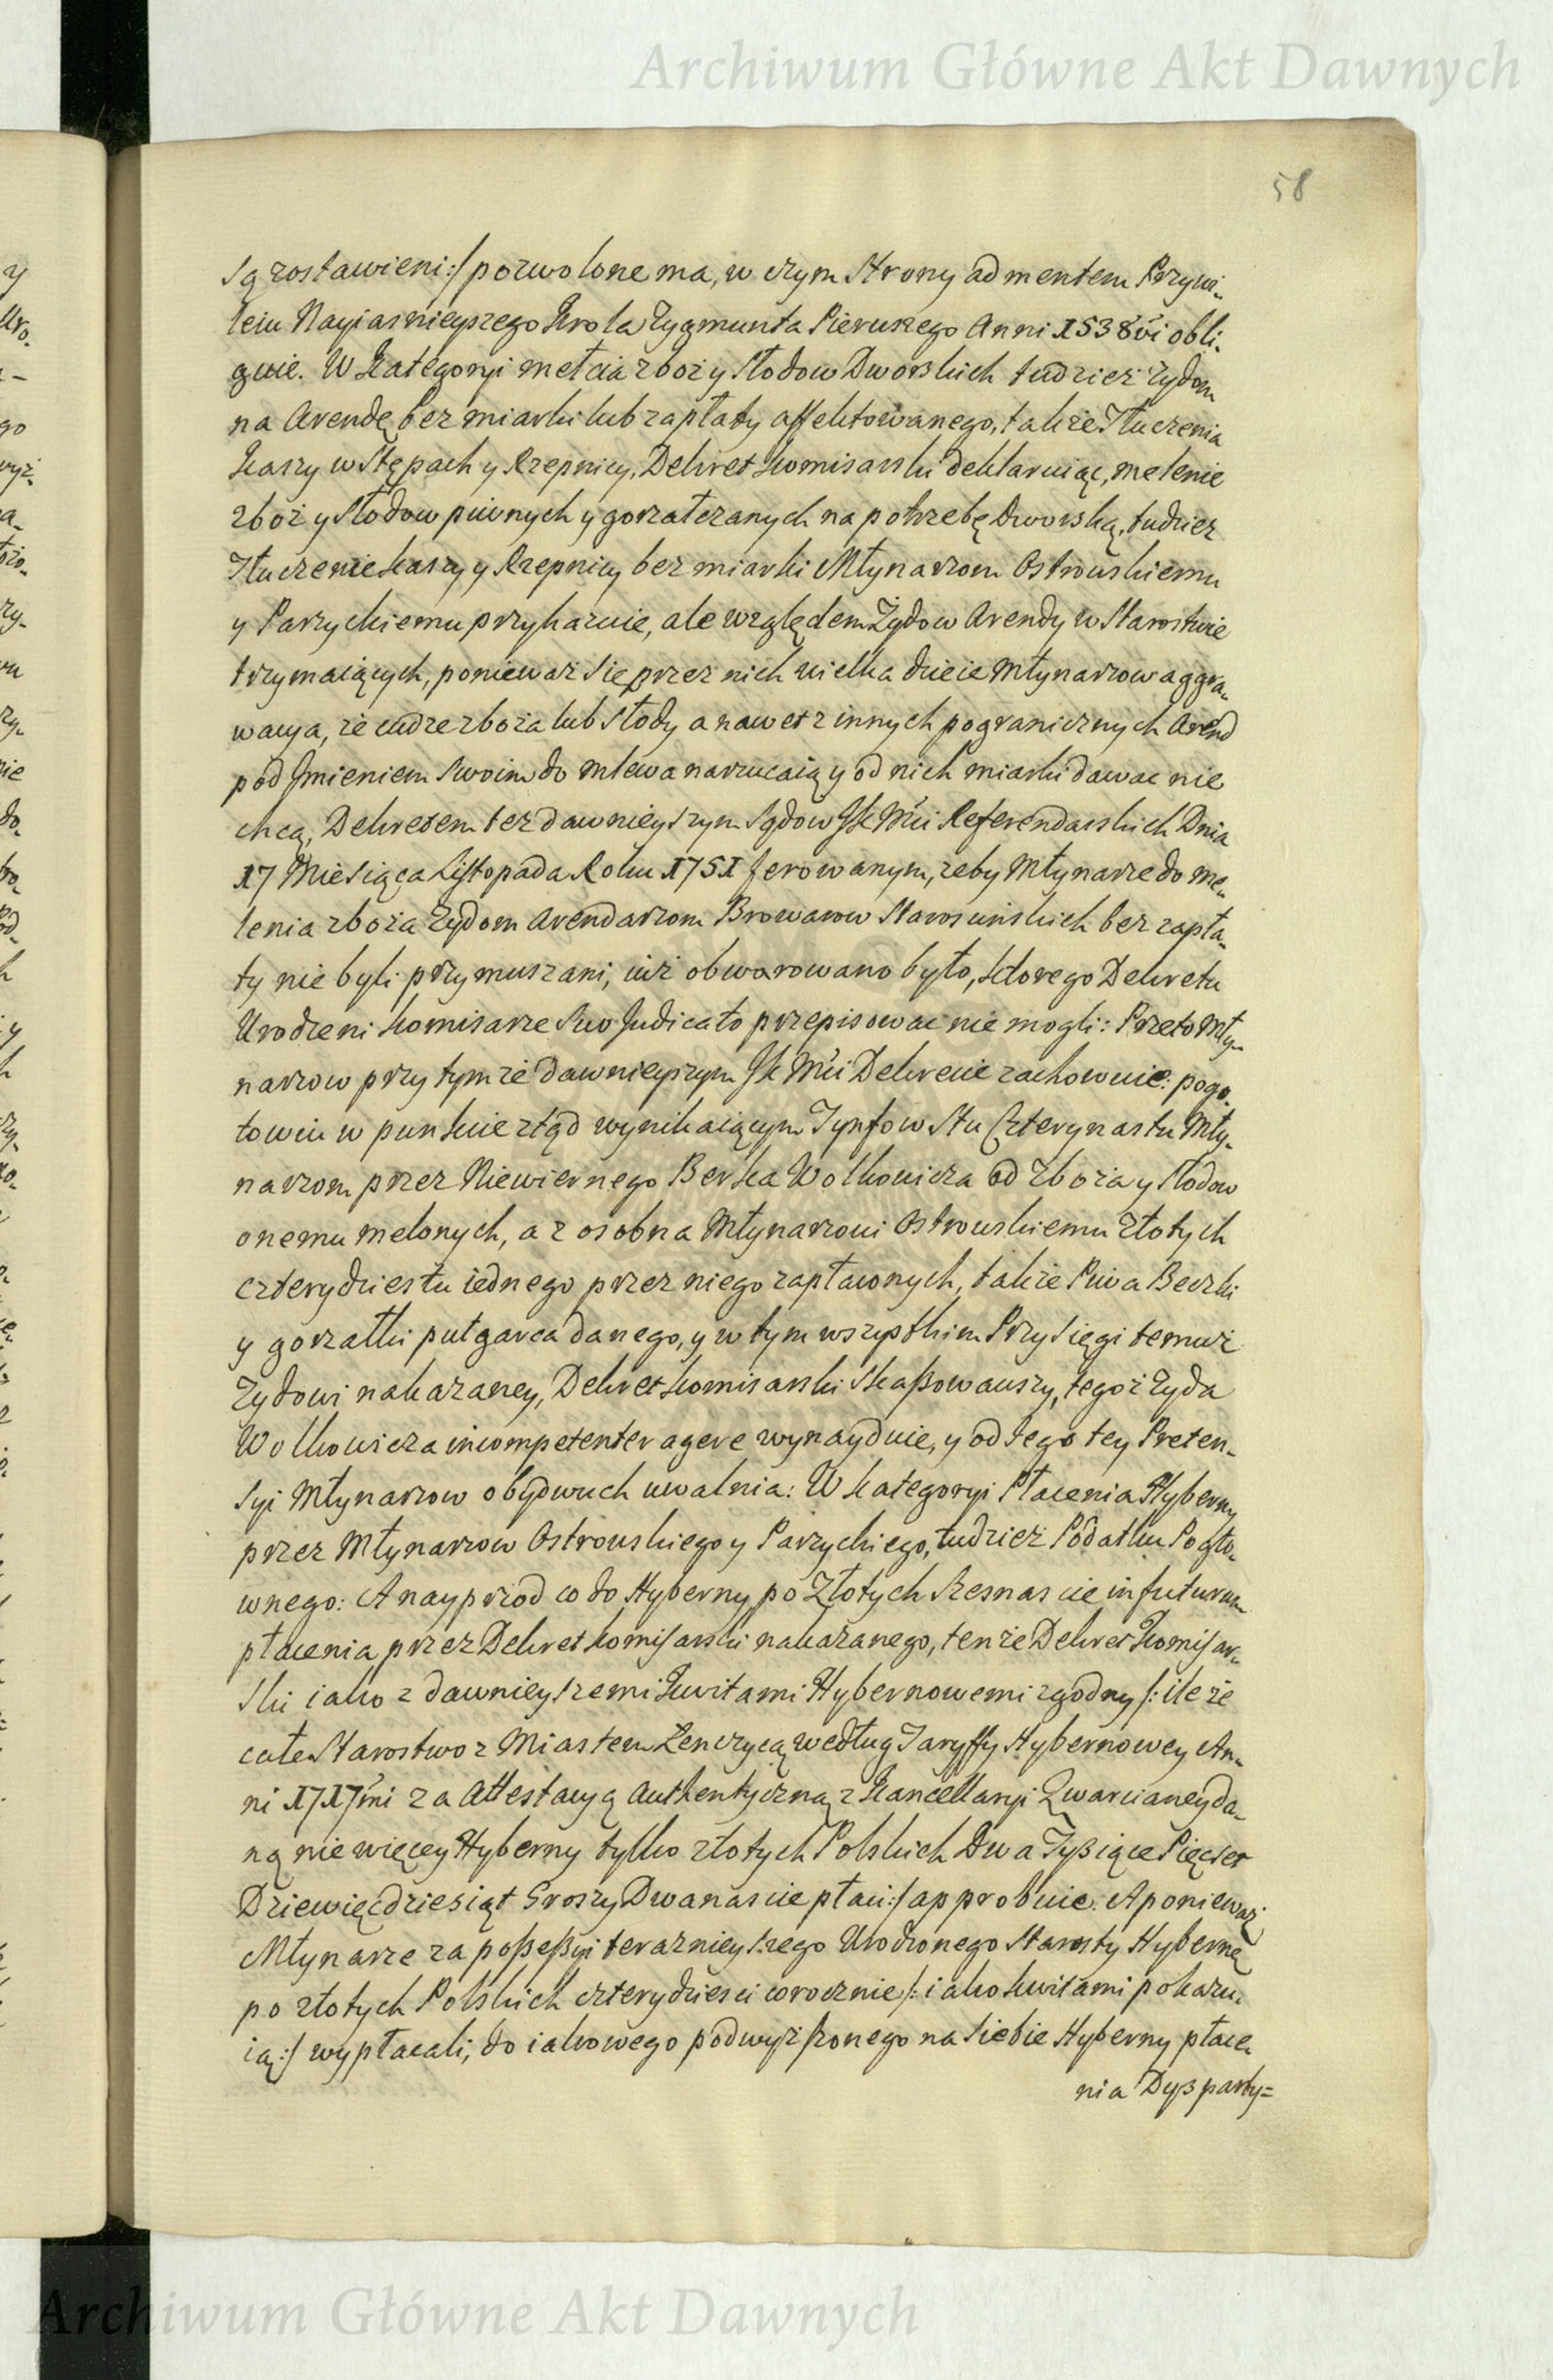 Archiwum Główne Akt Dawnych
58
są zostawieni:/ pozwolone ma, w czym Strony ad mentem Przywi-
leiu Nayiasnieyszego Krola Zygmunta Pierwszego Anni 1538vi obli-
guie. W Kategoryi mełcia zboż y Słodow Dworskich tudzież Żydom
na Arendę bez miarki lub zapłaty affektowanego, także Tłuczenia
Kaszy w Stępach y Rzepnicy, Dekret Komisarski deklaruiąc, melenie
zboż y Słodow piwnych y gorzałczanych na potrzebę Dworską, tudzież
Tłuczenie kaszy y Rzepnicy bez miarki Młynarzom Ostrowskiemu
y Parzyckiemu przykazuie, ale względem Żydow Arendy w Starostwie
trzymaiących, ponieważ się przez nich wielka dzieie Młynarzow aggra-
wacya, że cudze zboża lub Słody a nawet z innych pogranicznych Arend
pod Jmieniem Swoim do mlewa narzucaią y od nich miarki dawac nie
chcą, Dekretem też dawnieyszym Sądow JK Mci Referendarskich Dnia
17 Miesiąca Listopada Roku 1751 ferowanym, żeby Młynarze do me-
lenia zboża Żydom Arendarzom Browarow Starościńskich bez zapła-
ty nie byli przymuszani, iuż obwarowano było, ktorego Dekretu
Urodzeni Komisarze Suo Judicato przepisowac nie mogli: Przeto Mły-
narzow przy tymże dawnieyszym JK Mci Dekrecie zachowuie: pogo-
towiu w punkcie ztąd wynikaiącym Tynfow Stu Czterynastu Mły-
narzom przez Niewiernego Berka Wolkowicza od zboża y Słodow
onemu melonych, a z osobna Młynarzowi Ostrowskiemu Złotych
czterydziestu iednego przez niego zapłaconych, także Piwa Beczki
y gorzałki pułgarca danego, y w tym wszystkim Przysięgi temuż
Żydowi nakazaney, Dekret Komisarski Skaßowawszy, tegoż Żyda
Wolkowicza incompetenter agere wynayduie, y od tego tey Preten-
syi Młynarzow obydwuch uwalnia: W Kategoryi Płacenia Hyberny
przez Młynarzow Ostrowskiego y Parzyckiego, tudzież Podatku Pogło-
wnego: A nayprzod co do Hyberny po Złotych Szesnascie in futurum
płacenia przez Dekret Komisarski nakazanego, tenże Dekret Komisar-
ski iako z dawnieyszemi Kwitami Hybernowemi zgodny /: ile że
całe Starostwo z Miastem Łenczycą według Taryffy Hybernowey An-
ni 1717mi za Attestacyą Authentyczną z Kancellaryi Kwarcianey da-
ną nie więcey Hyberny tylko złotych Polskich Dwa Tyßiące Pięćset
Dziewięcdziesiąt Groszy Dwanascie płaci:/ approbuie. A ponieważ
Młynarze za poßeßyi teraznieyszego Urodzonego Starosty Hybernę
po złotych Polskich czterydziesci corocznie /: iako kwitami pokazu-
ią:/ wypłacali, do iakowego podwyższonego na siebie Hyberny płace-
nia Dysparty=
Archiwum Główne Akt Dawnych